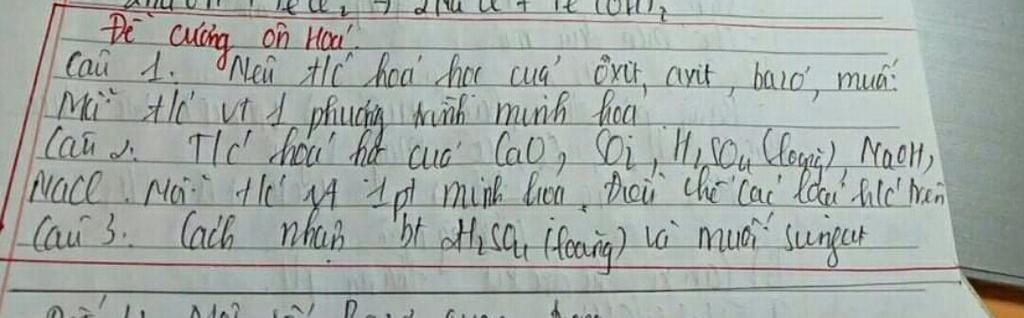 Đề cương ôn Hoá.
Câu 1. Nêu t/c hoá học của ôxit, axit, bazơ, muối.
Mỗi t/c vt 1 phương trình minh hoạ
Câu 2. T/c hoá học của CaO, SO₂, H₂SO₄ (loãng), NaOH,
NaCl. Mỗi t/c vt 1 pt minh hoạ. Điều chế các loại h/c trên
Câu 3. Cách nhận bt H₂SO₄ (loãng) và muối sunfat